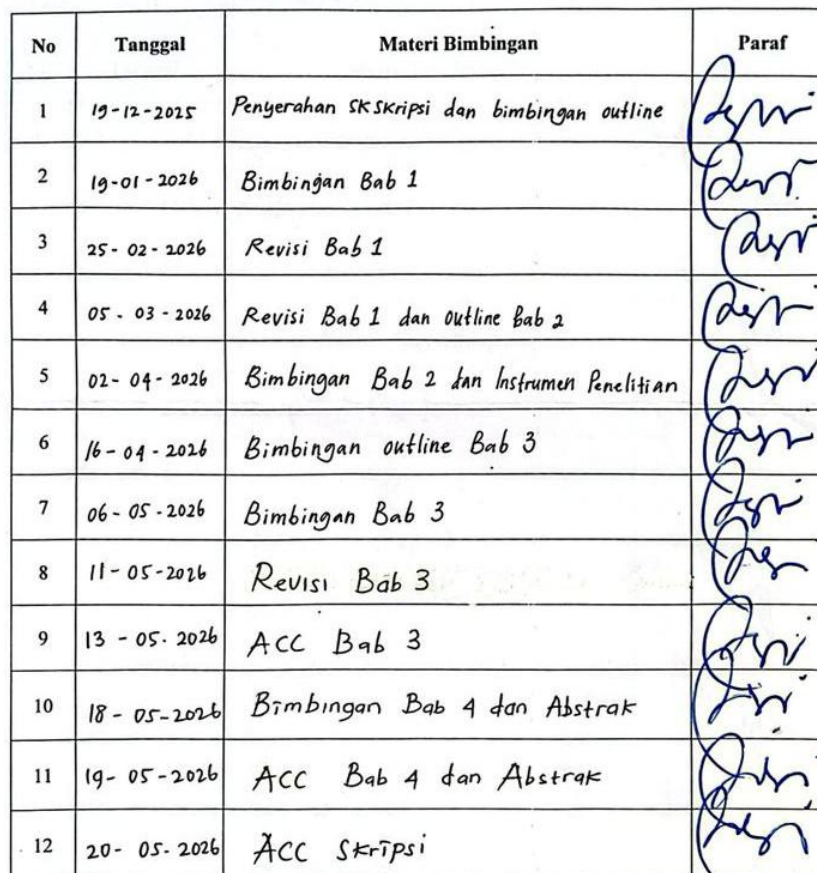 No Tanggal Materi Bimbingan Paraf
1 19-12-2025 Penyerahan SK Skripsi dan bimbingan outline
2 19-01-2026 Bimbingan Bab 1
3 25-02-2026 Revisi Bab 1
4 05-03-2026 Revisi Bab 1 dan outline Bab 2
5 02-04-2026 Bimbingan Bab 2 dan Instrumen Penelitian
6 16-04-2026 Bimbingan outline Bab 3
7 06-05-2026 Bimbingan Bab 3
8 11-05-2026 Revisi Bab 3
9 13-05-2026 ACC Bab 3
10 18-05-2026 Bimbingan Bab 4 dan Abstrak
11 19-05-2026 ACC Bab 4 dan Abstrak
12 20-05-2026 ACC Skripsi